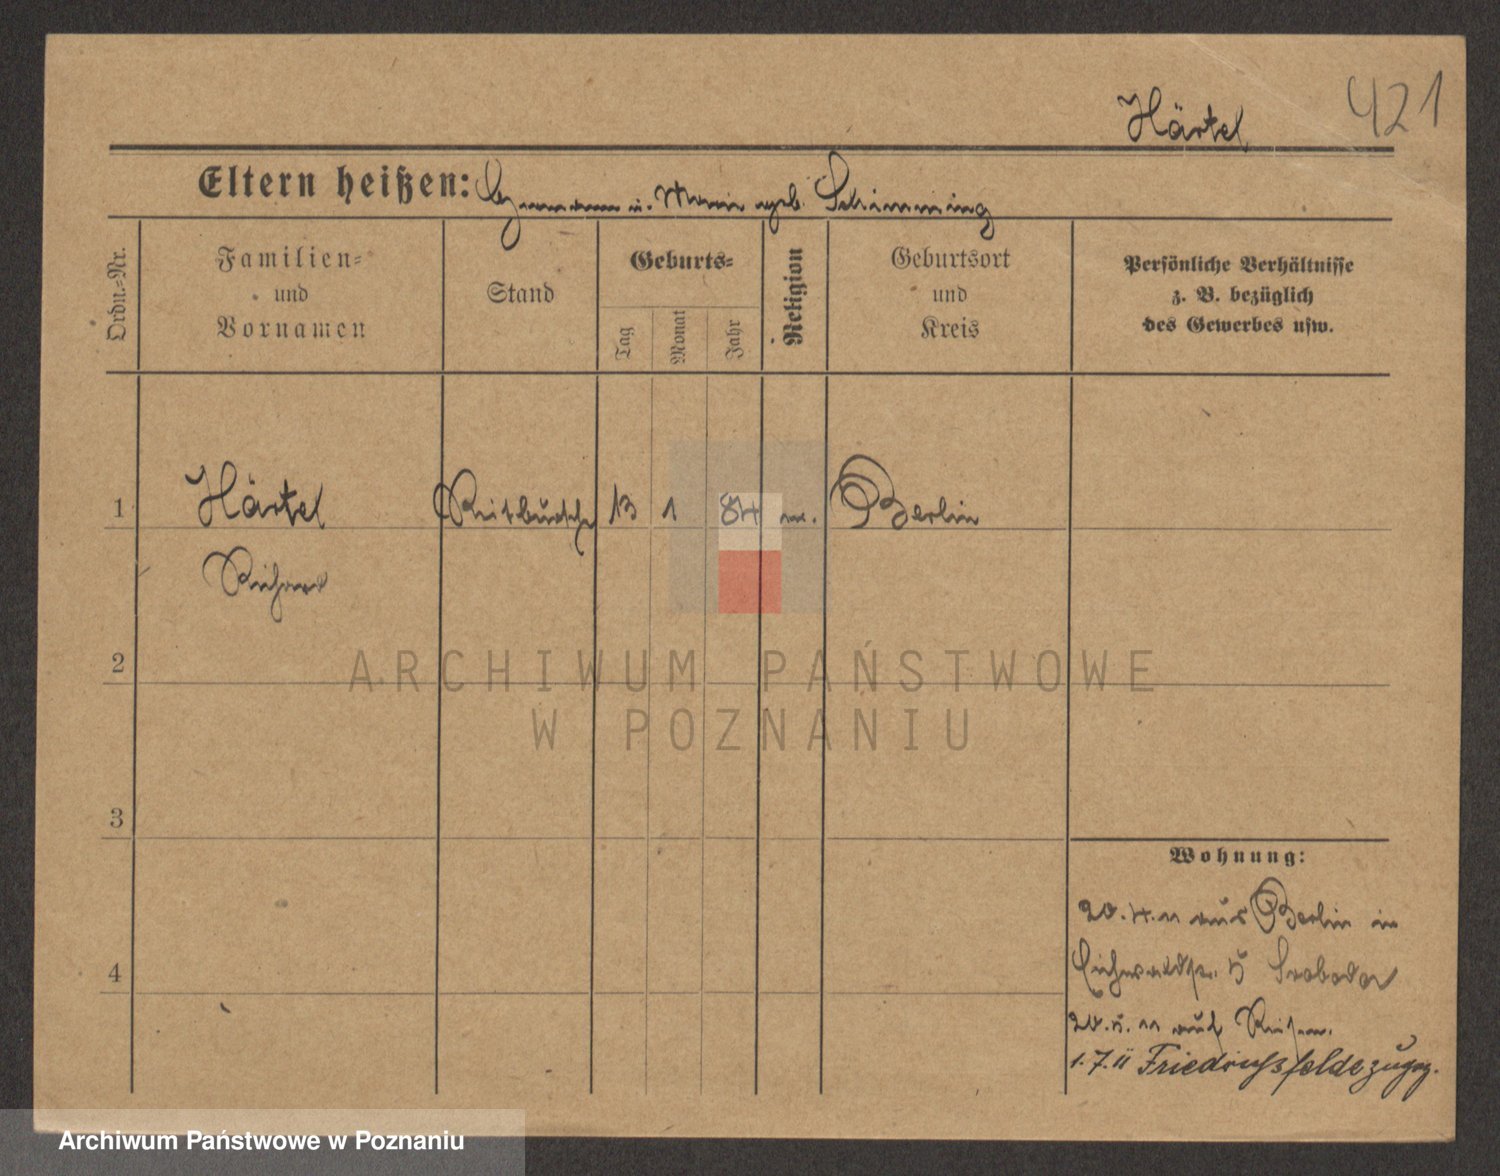 421
Härtel
Eltern heißen: Hermann u. Marie geb. Schimming
Ordn.=Nr.
Familien=
und
Vornamen
Stand
Geburts=
Tag
Monat
Jahr
Religion
Geburtsort
und
Kreis
Persönliche Verhältnisse
z. B. bezüglich
des Gewerbes usw.
1 Härtel Reitbursche 13 1 84 Berlin
Richard
2
ARCHIWUM PAŃSTWOWE
W POZNANIU
3
Wohnung:
20.4.11 aus Berlin in
4
Eichwaldstr. 5 Swoboda
20.5.11 auf Reisen.
1.7.11 Friedrichsfelde
Archiwum Państwowe w Poznaniu